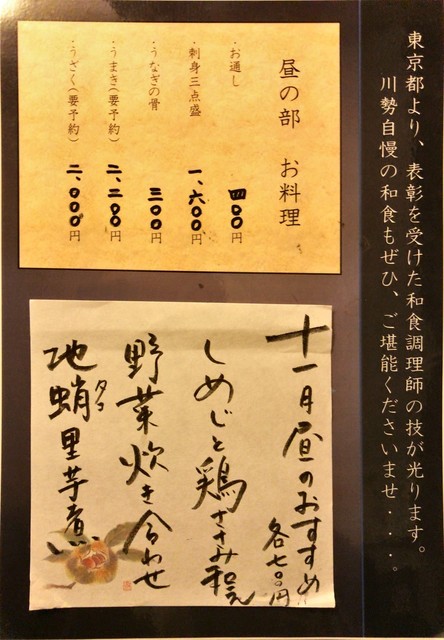 東京都より、表彰を受けた和食調理師の技が光ります。
川勢自慢の和食もぜひ、ご堪能くださいませ・・・。
昼の部　お料理
・お通し　四〇〇円
・刺身三点盛　一、六〇〇円
・うなぎの骨　三〇〇円
・うまき（要予約）　二、二〇〇円
・うざく（要予約）　二、〇〇〇円
十一月昼のおすすめ
各七〇〇円
しめじと鶏ささみ和え
野菜炊き合わせ
地蛸里芋煮
タコ